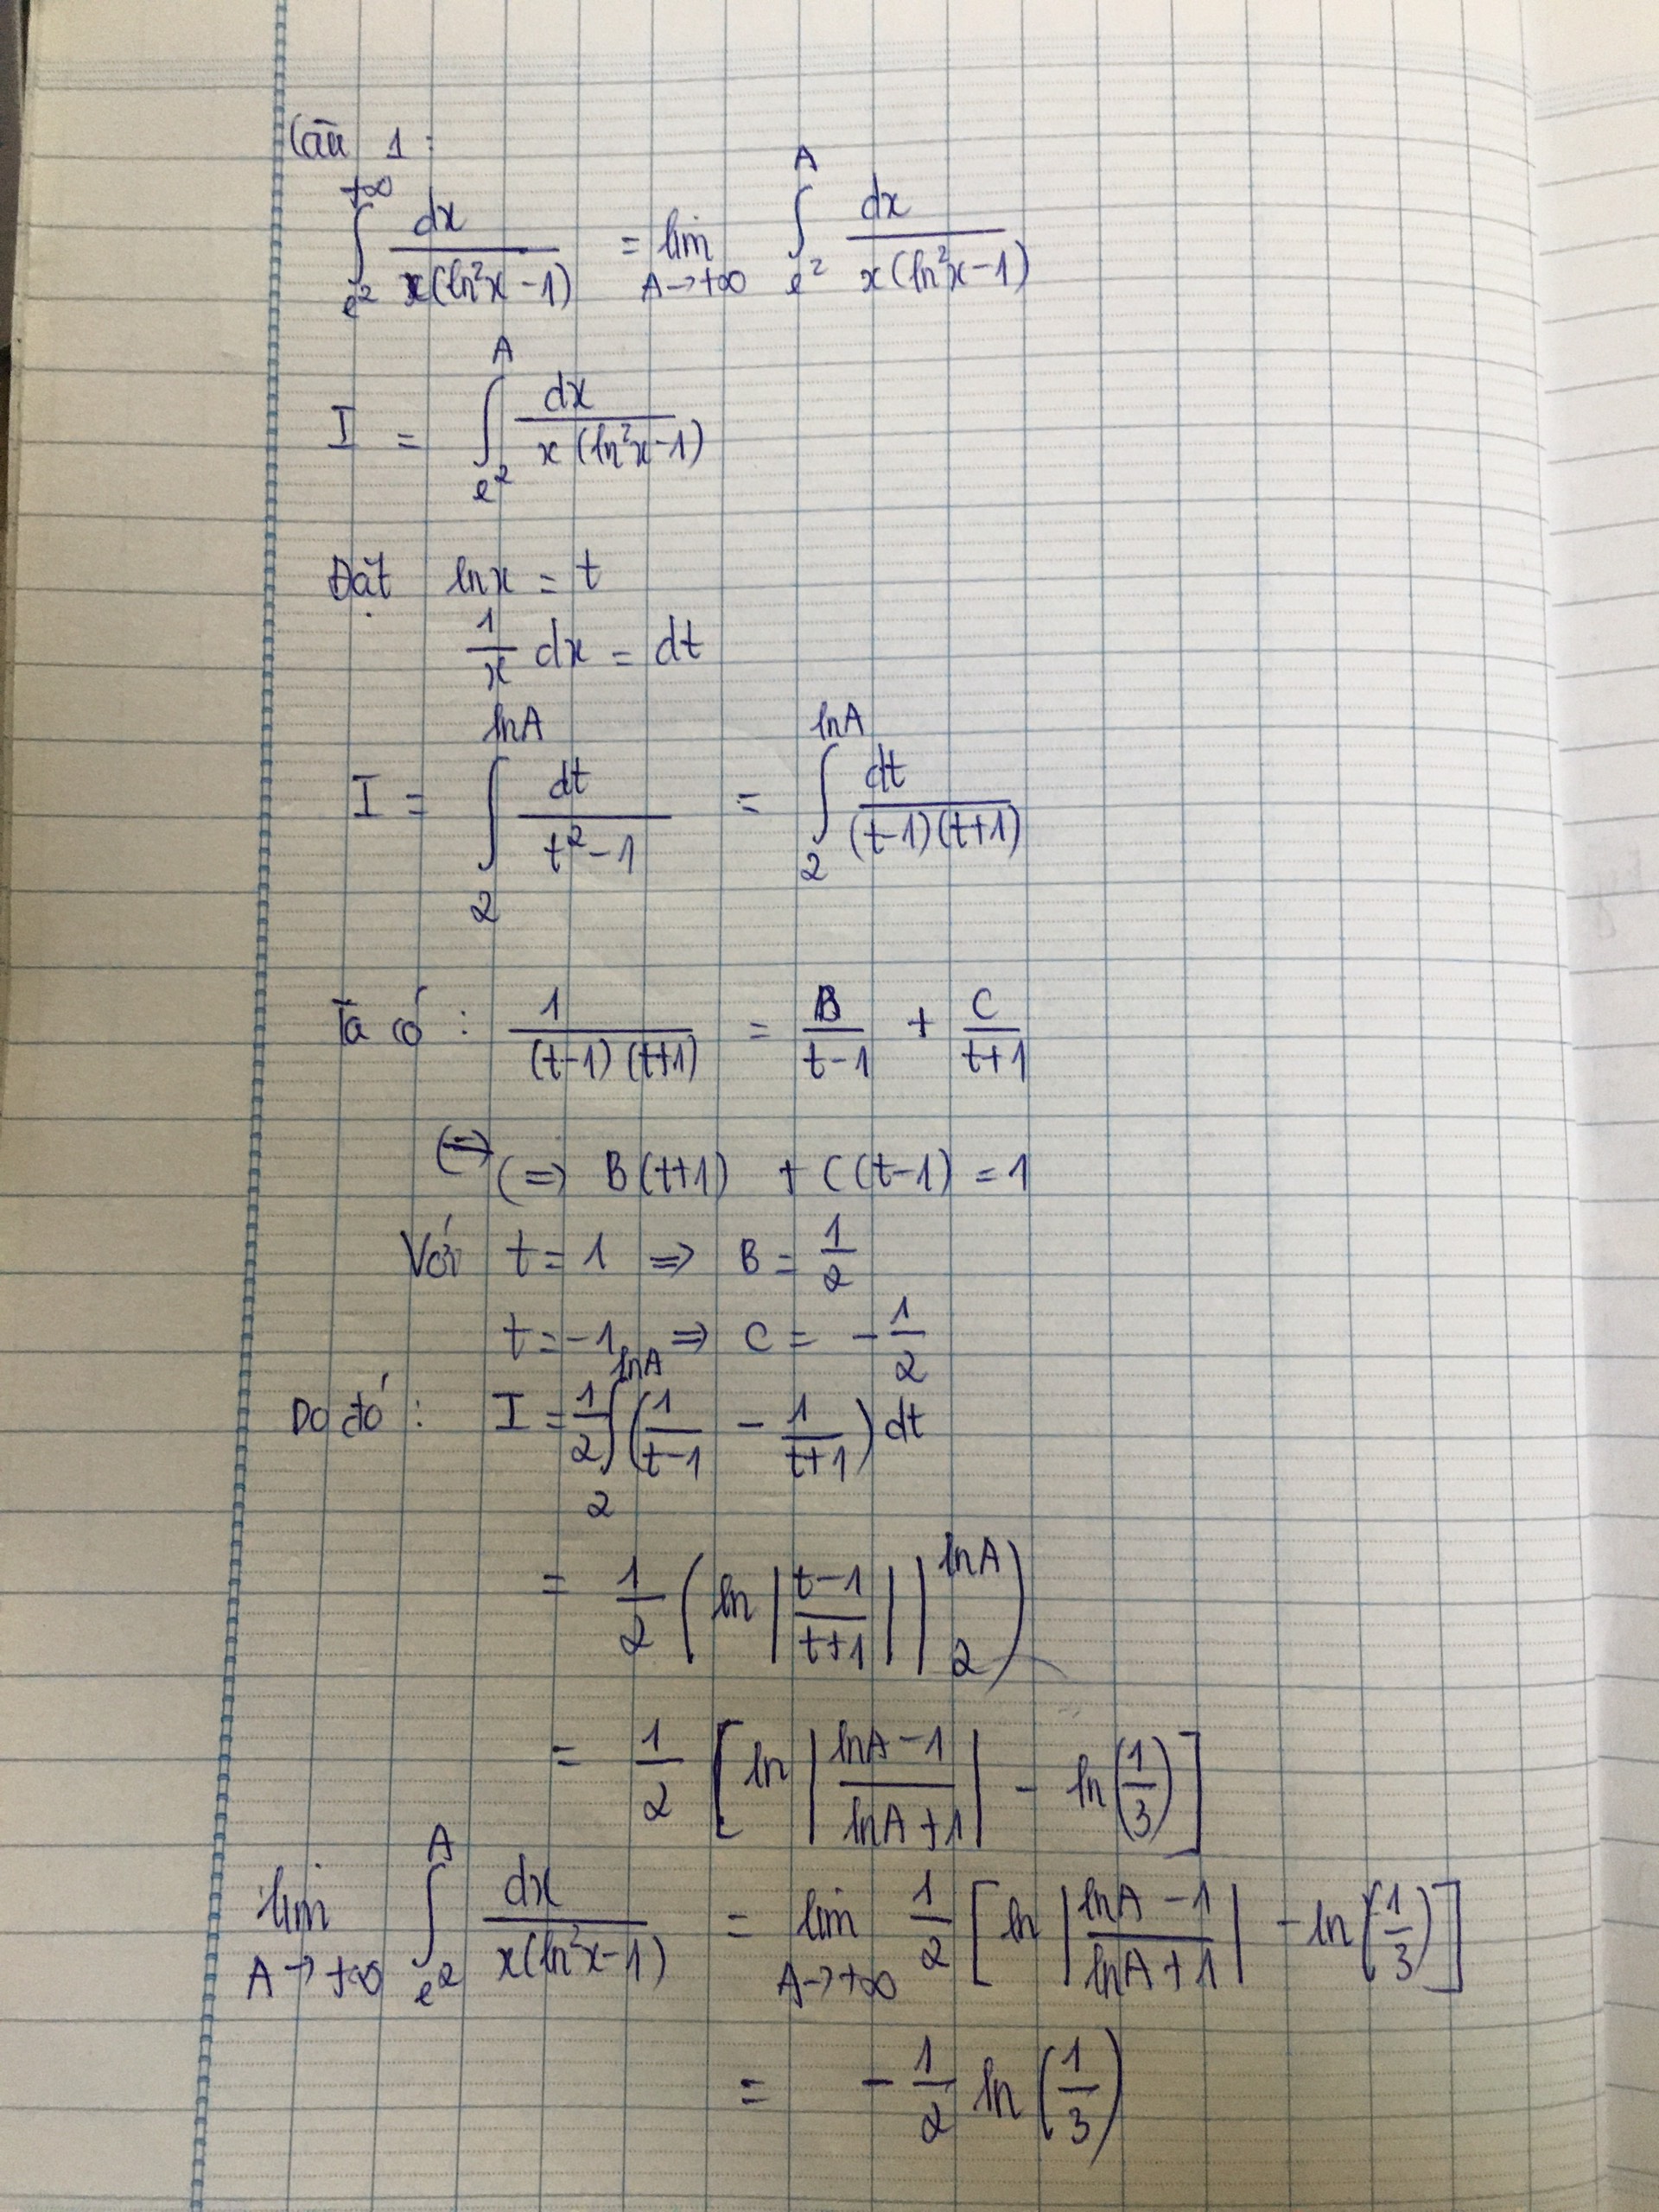 Câu 1:
∫_{e²}^{+∞} dx/(x(ln²x-1)) = lim_{A→+∞} ∫_{e²}^{A} dx/(x(ln²x-1))
I = ∫_{e²}^{A} dx/(x(ln²x-1))
Đặt lnx = t
1/x dx = dt
I = ∫_{2}^{lnA} dt/(t²-1) = ∫_{2}^{lnA} dt/((t-1)(t+1))
Ta có: 1/((t-1)(t+1)) = B/(t-1) + C/(t+1)
(=) B(t+1) + C(t-1) = 1
Với t = 1 ⇒ B = 1/2
t = -1 ⇒ C = -1/2
Do đó: I = 1/2 ∫_{2}^{lnA} (1/(t-1) - 1/(t+1)) dt
= 1/2 (ln|(t-1)/(t+1)| |_{2}^{lnA})
= 1/2 [ln|(lnA-1)/(lnA+1)| - ln(1/3)]
lim_{A→+∞} ∫_{e²}^{A} dx/(x(ln²x-1)) = lim_{A→+∞} 1/2 [ln|(lnA-1)/(lnA+1)| - ln(1/3)]
= -1/2 ln(1/3)